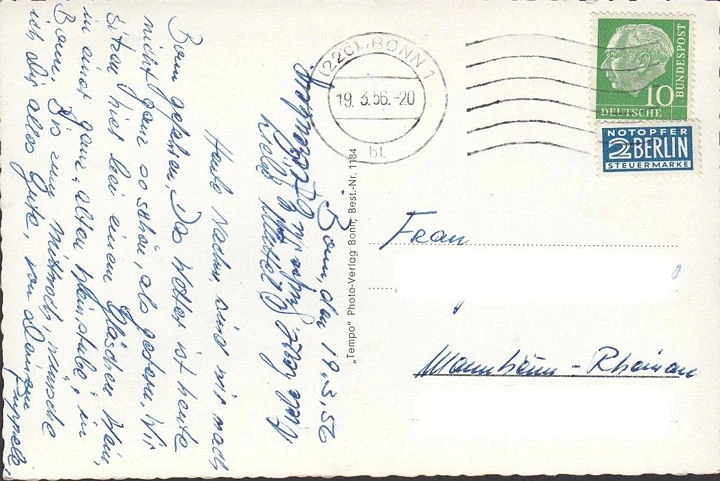 Bonn, den 19.3.56
Heute Nachm. sind wir nach
Bonn gefahren. Das Wetter ist heute
nicht ganz so schön, als gestern. Wir
sitzen hier bei einem Gläschen Wein,
in einer ganz alten Weinstube, in
Bonn. Bis zum Mittwoch, wünsche
ich dir alles Gute, von Deinem
(22c) BONN 1
19.3.56.-20
bl
10
DEUTSCHE
BUNDESPOST
NOTOPFER
2 BERLIN
STEUERMARKE
„Tempo" Photo-Verlag Bonn, Best.-Nr. 1184
Frau
Mannheim-Rheinau